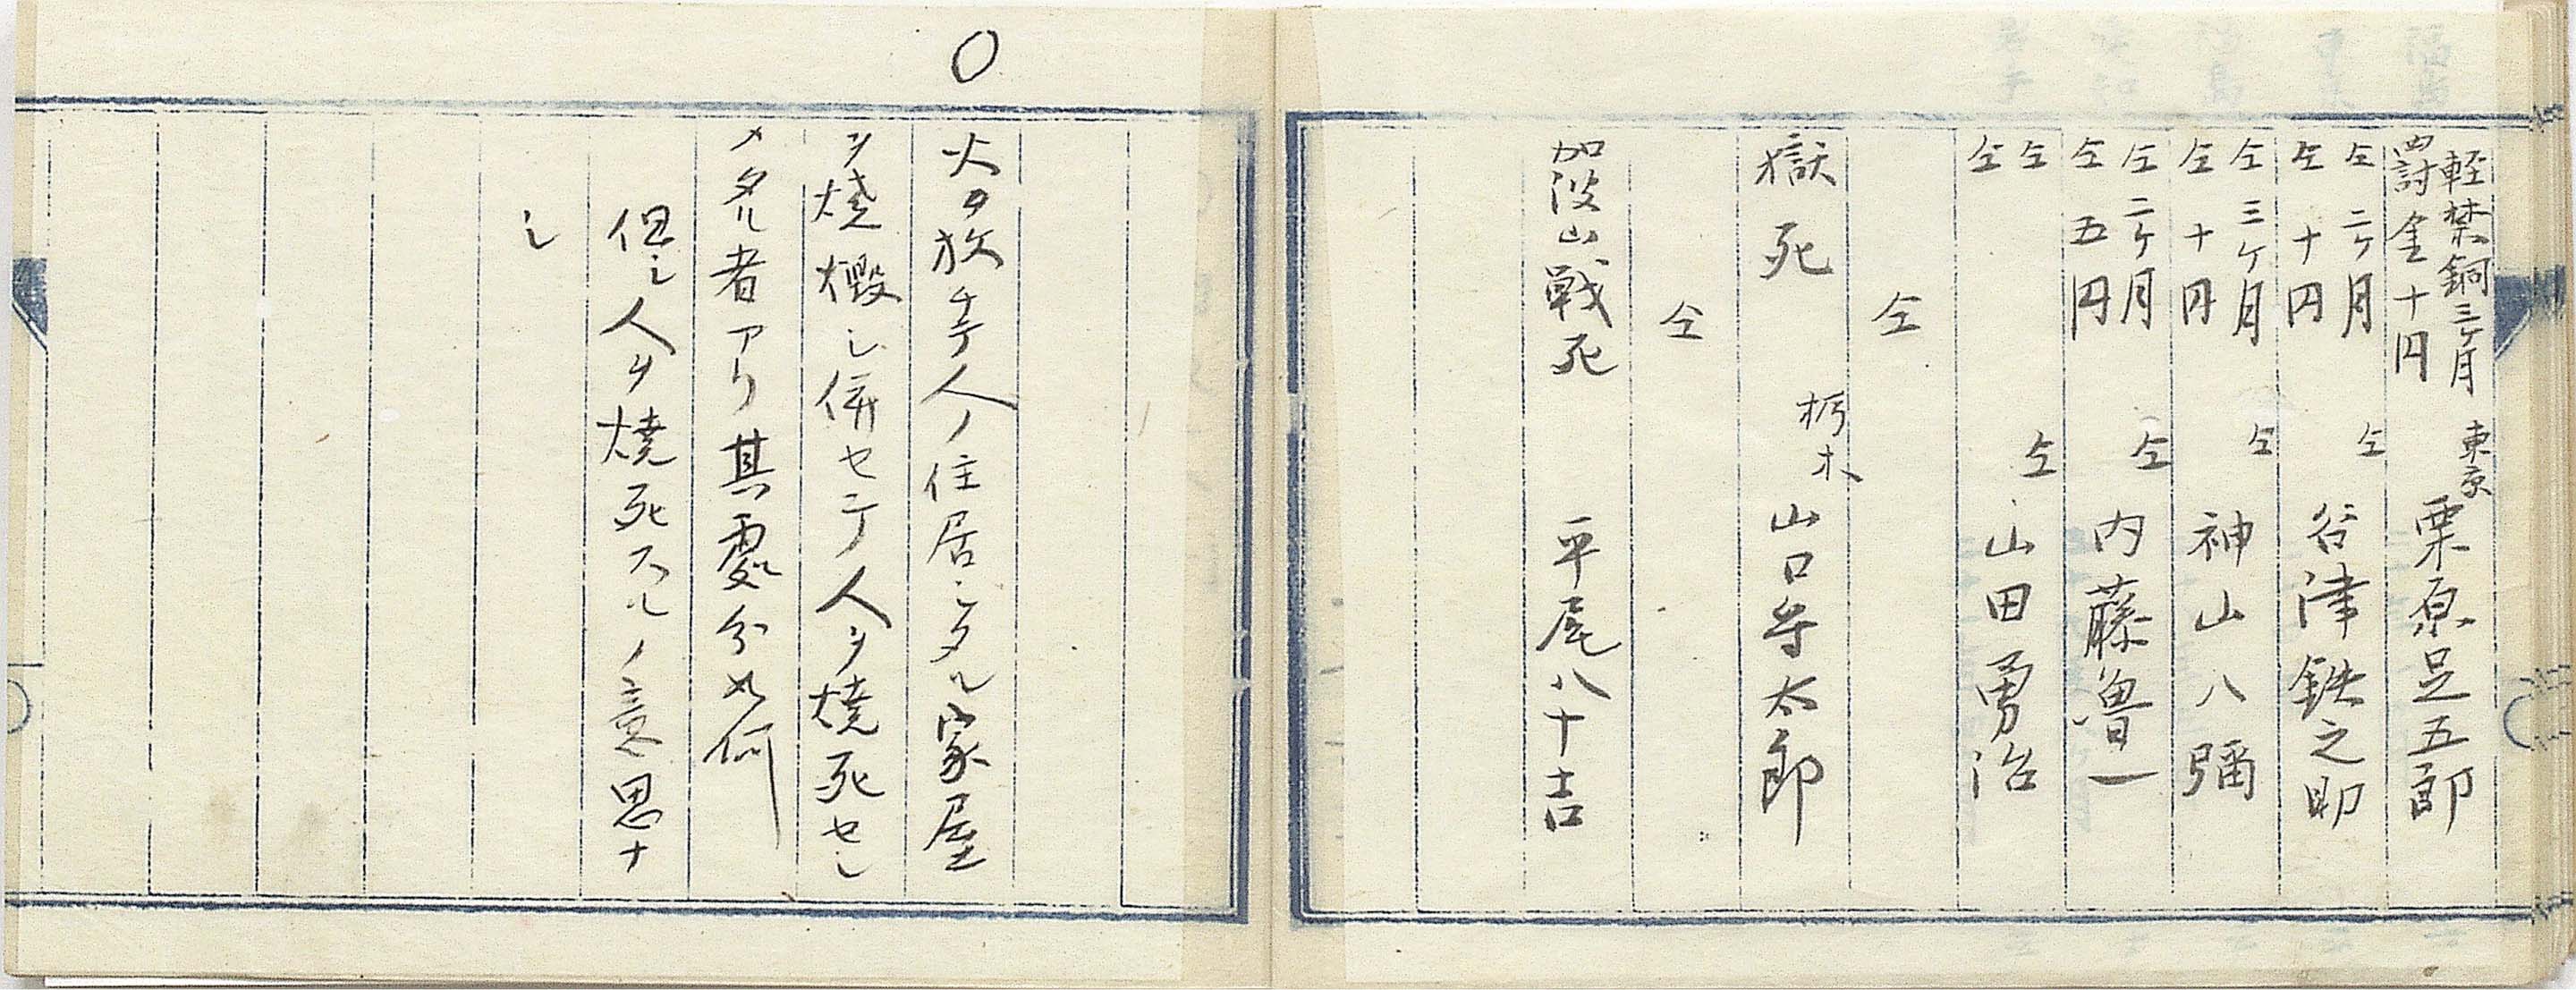 軽禁錮三ヶ月 東京 栗原足五郎
罰金十円
仝 二ヶ月 仝 谷津鉄之助
仝 十円
仝 三ヶ月 仝 神山八彌
仝 十円
仝 二ヶ月 仝 内藤魯一
仝 五円
仝 仝 山田勇治
仝
仝
獄死 栃木 山口守太郎
仝
加波山戦死 平尾八十吉
○
火ヲ放チテ人ノ住居シタル家屋
ヲ燒燬シ併セテ人ヲ燒死セシ
メタル者アリ其處分如何
但シ人ヲ燒死スルノ意思ナ
シ